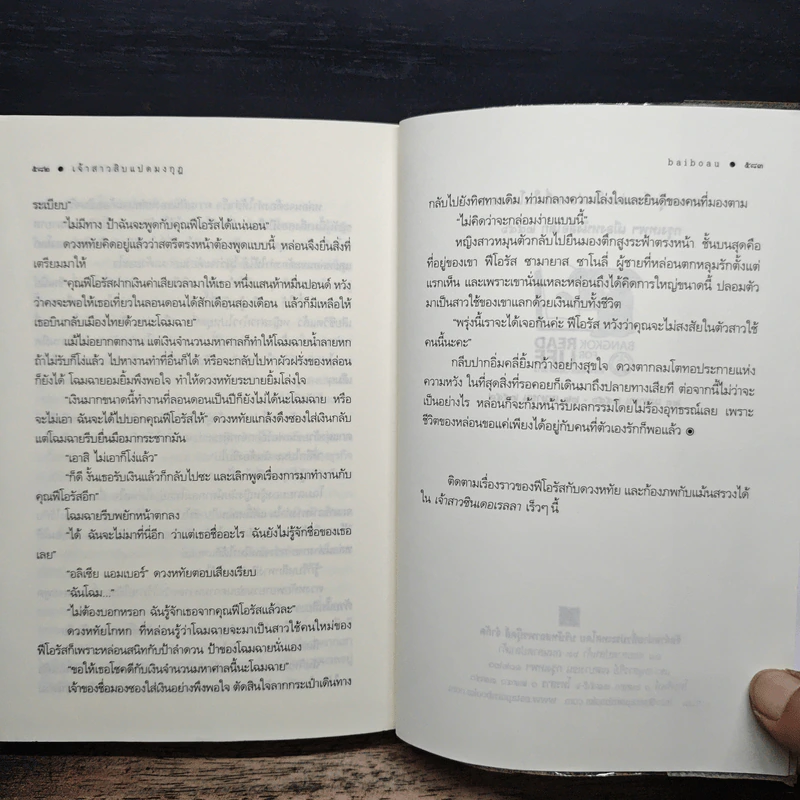 ๕๘๒ ● เจ้าสาวสิบแปดมงกุฎ
ระเบียบ"
"ไม่มีทาง ป้าฉันจะพูดกับคุณฟีโอรัสได้แน่นอน"
ดวงหทัยคิดอยู่แล้วว่าสตรีตรงหน้าต้องพูดแบบนี้ หล่อนจึงยื่นสิ่งที่
เตรียมมาให้
"คุณฟีโอรัสฝากเงินค่าเสียเวลามาให้เธอ หนึ่งแสนห้าหมื่นปอนด์ หวัง
ว่าคงจะพอให้เธอเที่ยวในลอนดอนได้สักเดือนสองเดือน แล้วก็มีเหลือให้
เธอบินกลับเมืองไทยด้วยนะโฉมฉาย"
แม้ไม่อยากตกงาน แต่เงินจำนวนมหาศาลก็ทำให้โฉมฉายน้ำลายหก
ถ้าไม่รับก็โง่แล้ว ไปหางานทำที่อื่นก็ได้ หรือจะกลับไปหาผัวฝรั่งของหล่อน
ก็ยังได้ โฉมฉายอมยิ้มพึงพอใจ ทำให้ดวงหทัยระบายยิ้มโล่งใจ
"เงินมากขนาดนี้ทำงานที่ลอนดอนเป็นปีก็ยังไม่ได้นะโฉมฉาย หรือ
จะไม่เอา ฉันจะได้ไปบอกคุณฟีโอรัสให้" ดวงหทัยแกล้งดึงซองใส่เงินกลับ
แต่โฉมฉายรีบยื่นมือมากระชากมัน
"เอาสิ ไม่เอาก็โง่แล้ว"
"ก็ดี งั้นเธอรับเงินแล้วก็กลับไปซะ และเลิกพูดเรื่องการมาทำงานกับ
คุณฟีโอรัสอีก"
โฉมฉายรีบพยักหน้าตกลง
"ได้ ฉันจะไม่มาที่นี่อีก ว่าแต่เธอชื่ออะไร ฉันยังไม่รู้จักชื่อของเธอ
เลย"
"อลิเซีย แอมเบอร์" ดวงหทัยตอบเสียงเรียบ
"ฉันโฉม..."
"ไม่ต้องบอกหรอก ฉันรู้จักเธอจากคุณฟีโอรัสแล้วละ"
ดวงหทัยโกหก ที่หล่อนรู้ว่าโฉมฉายจะมาเป็นสาวใช้คนใหม่ของ
ฟีโอรัสก็เพราะหล่อนสนิทกับป้าลำดวน ป้าของโฉมฉายนั่นเอง
"ขอให้เธอโชคดีกับเงินจำนวนมหาศาลนี้นะโฉมฉาย"
เจ้าของชื่อมองซองใส่เงินอย่างพึงพอใจ ตัดสินใจลากกระเป๋าเดินทาง
baiboau ● ๕๘๓
กลับไปยังทิศทางเดิม ท่ามกลางความโล่งใจและยินดีของคนที่มองตาม
"ไม่คิดว่าจะกล่อมง่ายแบบนี้"
หญิงสาวหมุนตัวกลับไปยืนมองตึกสูงระฟ้าตรงหน้า ชั้นบนสุดคือ
ที่อยู่ของเขา ฟีโอรัส ซามายาส ซาโนลี่ ผู้ชายที่หล่อนตกหลุมรักตั้งแต่
แรกเห็น และเพราะเขานั่นแหละหล่อนถึงได้คิดการใหญ่ขนาดนี้ ปลอมตัว
มาเป็นสาวใช้ของเขาแลกด้วยเงินเก็บทั้งชีวิต
"พรุ่งนี้เราจะได้เจอกันค่ะ ฟีโอรัส หวังว่าคุณจะไม่สงสัยในตัวสาวใช้
คนนี้นะคะ"
กลีบปากอิ่มคลี่ยิ้มกว้างอย่างสุขใจ ดวงตากลมโตทอประกายแห่ง
ความหวัง ในที่สุดสิ่งที่รอคอยก็เดินมาถึงปลายทางเสียที ต่อจากนี้ไม่ว่าจะ
เป็นอย่างไร หล่อนก็จะก้มหน้ารับผลกรรมโดยไม่ร้องอุทธรณ์เลย เพราะ
ชีวิตของหล่อนขอแค่เพียงได้อยู่กับคนที่ตัวเองรักก็พอแล้ว ◉
ติดตามเรื่องราวของฟีโอรัสกับดวงหทัย และก้องภพกับแม้นสรวงได้
ใน เจ้าสาวซินเดอเรลลา เร็วๆ นี้